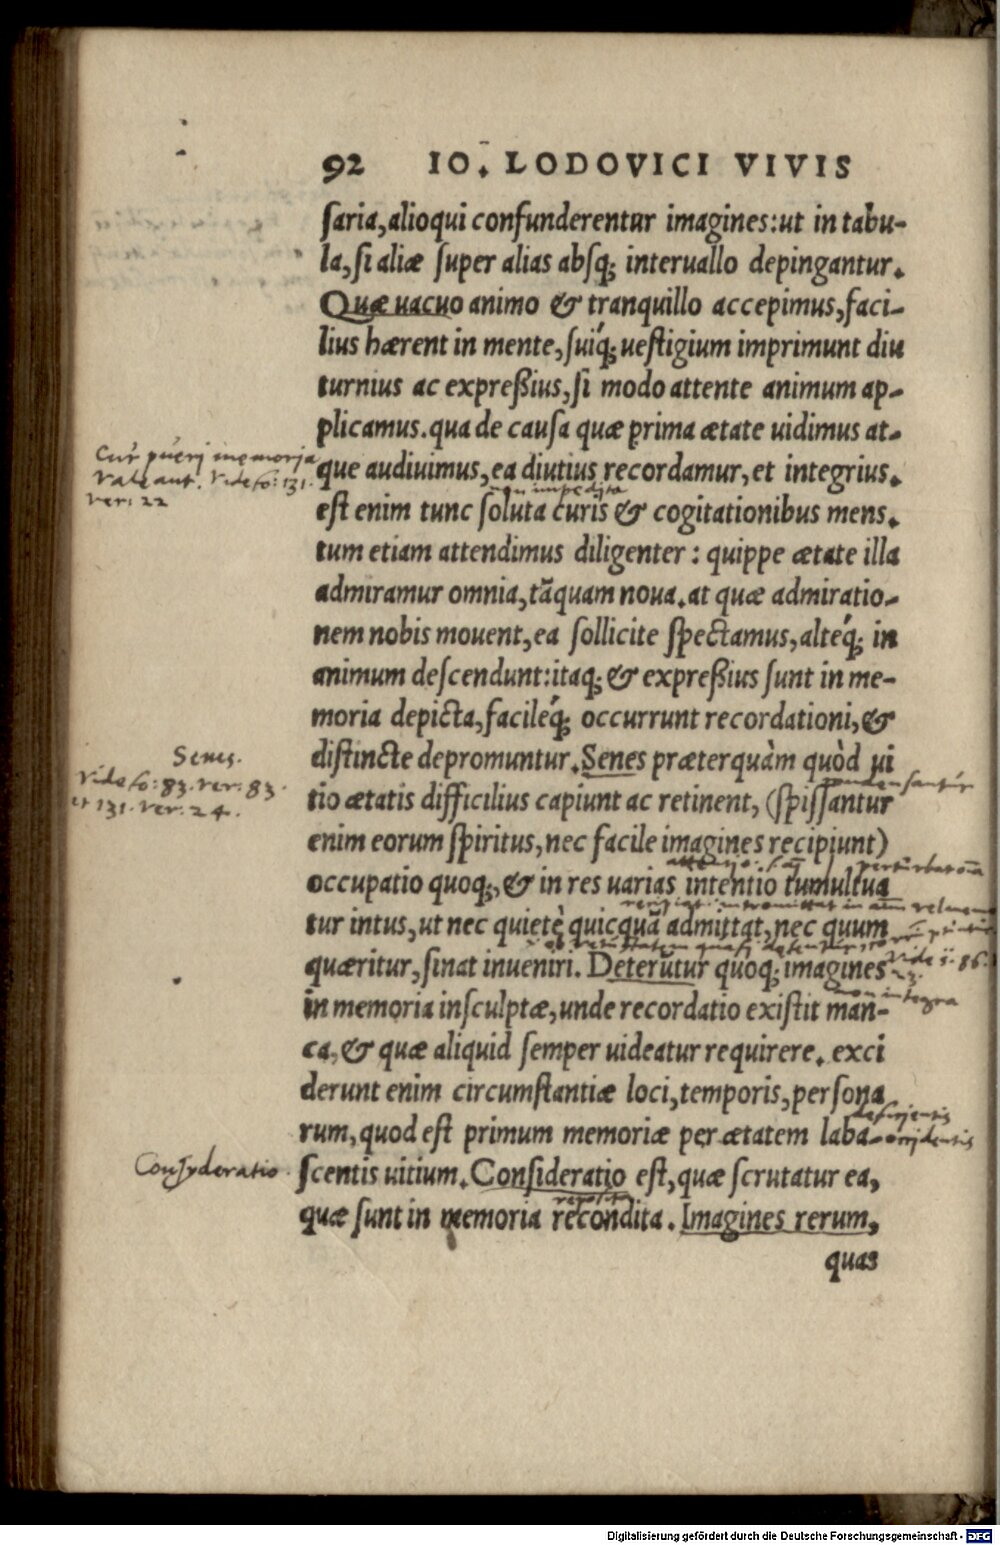 92 IO. LODOVICI VIVIS
ſaria, alioqui confunderentur imagines: ut in tabu-
la, ſi aliæ ſuper alias abſq; interuallo depingantur.
Quæ uacuo animo & tranquillo accepimus, faci-
lius hærent in mente, ſuiq́; ueſtigium imprimunt diu
turnius ac expreßius, ſi modo attente animum ap-
plicamus. qua de cauſa quæ prima ætate uidimus at-
Cur pueri memoria
valeant. Vide fo: 131.
ver: 22
que audiuimus, ea diutius recordamur, et integrius.
non impedita
eſt enim tunc ſoluta curis & cogitationibus mens.
tum etiam attendimus diligenter: quippe ætate illa
admiramur omnia, tãquam noua. at quæ admiratio-
nem nobis mouent, ea ſollicite ſpectamus, alteq́; in
animum deſcendunt: itaq; & expreßius ſunt in me-
moria depicta, facileq́; occurrunt recordationi, &
Senes.
Vide fo: 83. ver: 83.
et 131. ver: 24.
diſtincte depromuntur. Senes præterquàm quòd ui
tio ætatis difficilius capiunt ac retinent, (ſpiſſantur
enim eorum ſpiritus, nec facile imagines recipiunt)
occupatio quoq;, & in res uarias intentio tumultua
tur intus, ut nec quietè quicquã admittat, nec quum
Vide s. 86.
quæritur, ſinat inueniri. Deterũtur quoq; imagines
non integra
in memoria inſculptæ, unde recordatio exiſtit man-
ca, & quæ aliquid ſemper uideatur requirere. exci
derunt enim circumſtantiæ loci, temporis, perſona
rum, quod eſt primum memoriæ per ætatem laba-
Conſyderatio.
ſcentis uitium. Conſideratio eſt, quæ ſcrutatur ea,
quæ ſunt in memoria recondita. Imagines rerum,
quas
Digitalisierung gefördert durch die Deutsche Forschungsgemeinschaft - DFG